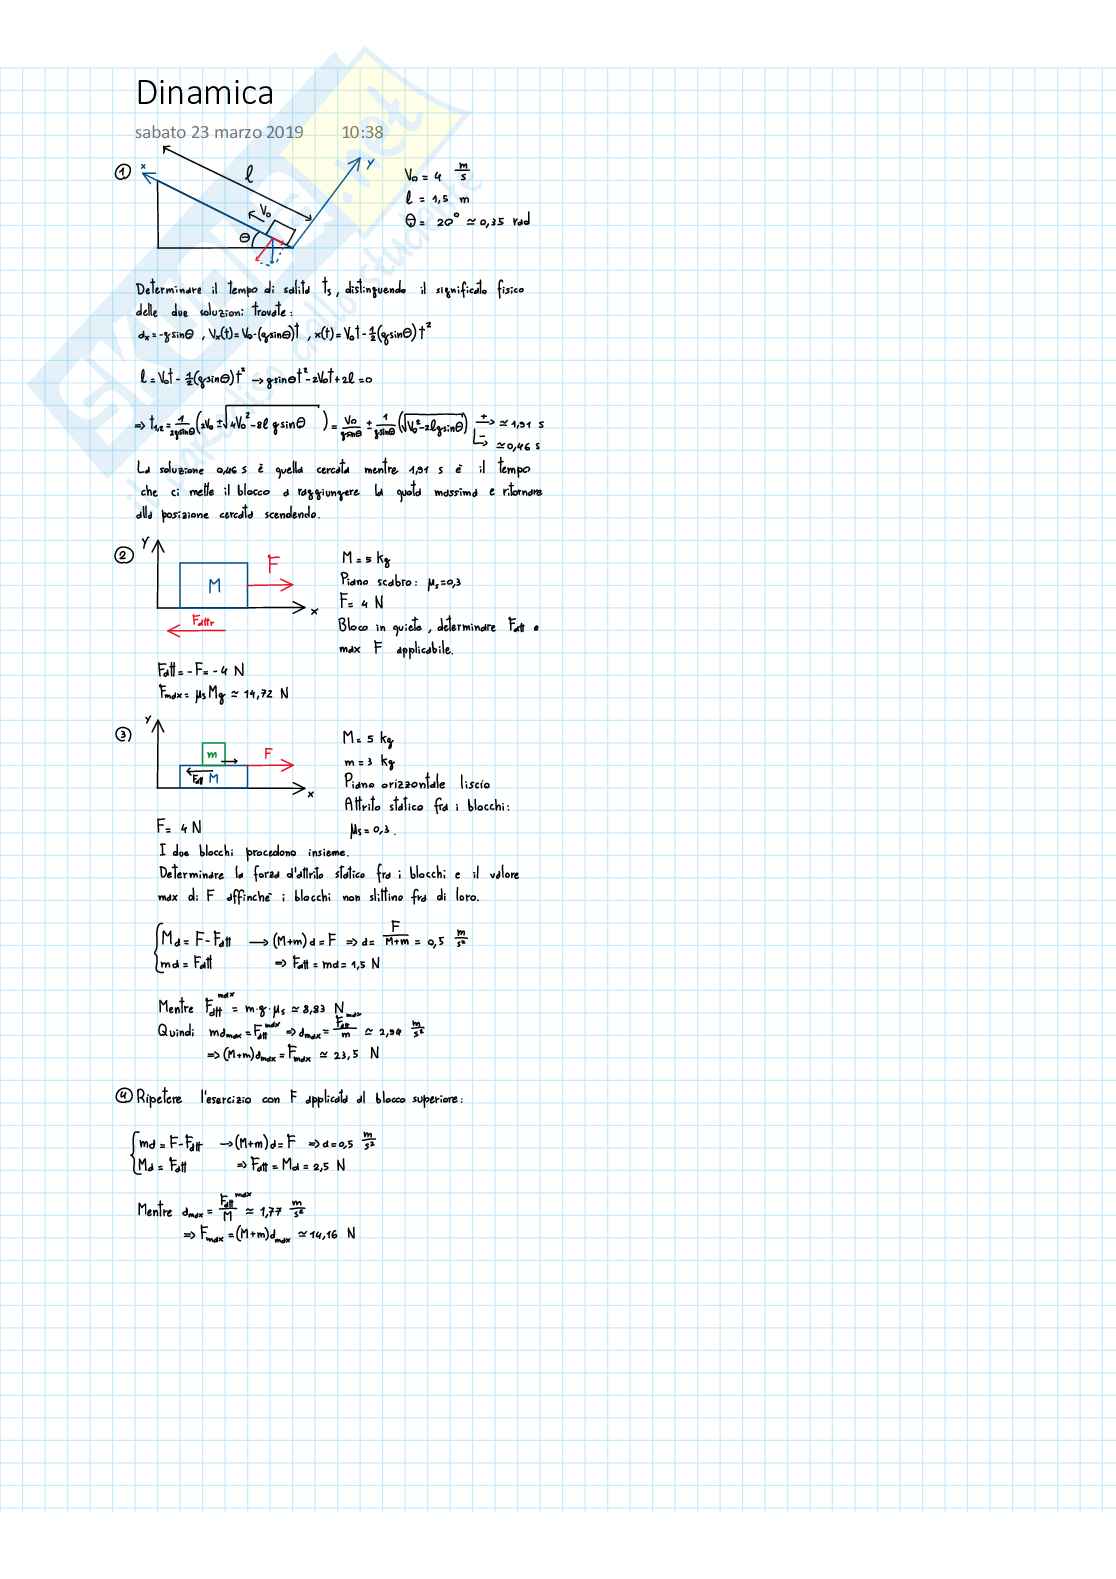 Dinamica
sabato 23 marzo 2019 10:38
SKUOLA.net
① x l y V₀ θ
V₀ = 4 m/s
l = 1,5 m
θ = 20° ≃ 0,35 rad
Determinare il tempo di salita ts, distinguendo il significato fisico
delle due soluzioni trovate:
ax = -g sinθ , Vx(t) = V₀ - (g sinθ)t , x(t) = V₀t - 1/2(g sinθ)t²
l = V₀t - 1/2(g sinθ)t² → g sinθ t² - 2V₀t + 2l = 0
⇒ t1,2 = 1/(2g sinθ) (2V₀ ± √(4V₀² - 8l g sinθ)) = V₀/(g sinθ) ± 1/(g sinθ) (√(V₀² - 2l g sinθ)) + → ≃ 1,91 s
- → ≃ 0,46 s
La soluzione 0,46 s è quella cercata mentre 1,91 s è il tempo
che ci mette il blocco a raggiungere la quota massima e ritornare
alla posizione cercata scendendo.
② y M F x Fattr
M = 5 kg
Piano scabro: μs = 0,3
F = 4 N
Bloco in quiete, determinare Fatt e
max F applicabile.
Fatt = -F = -4 N
Fmax = μs Mg ≃ 14,72 N
③ y m F Fatt M x
M = 5 kg
m = 3 kg
Piano orizzontale liscio
Attrito statico fra i blocchi:
F = 4 N μs = 0,3.
I due blocchi procedono insieme.
Determinare la forza d'attrito statico fra i blocchi e il valore
max di F affinchè i blocchi non slittino fra di loro.
Ma = F - Fatt → (M+m)a = F ⇒ a = F/(M+m) = 0,5 m/s²
ma = Fatt ⇒ Fatt = ma = 1,5 N
Mentre Fatt max = m·g·μs ≃ 8,83 N
Quindi m amax = Fatt max ⇒ amax = Fatt max/m ≃ 2,94 m/s²
⇒ (M+m)amax = Fmax ≃ 23,5 N
④ Ripetere l'esercizio con F applicata al blocco superiore:
ma = F - Fatt → (M+m)a = F ⇒ a = 0,5 m/s²
Ma = Fatt ⇒ Fatt = Ma = 2,5 N
Mentre amax = Fatt max/M ≃ 1,77 m/s²
⇒ Fmax = (M+m)amax ≃ 14,16 N